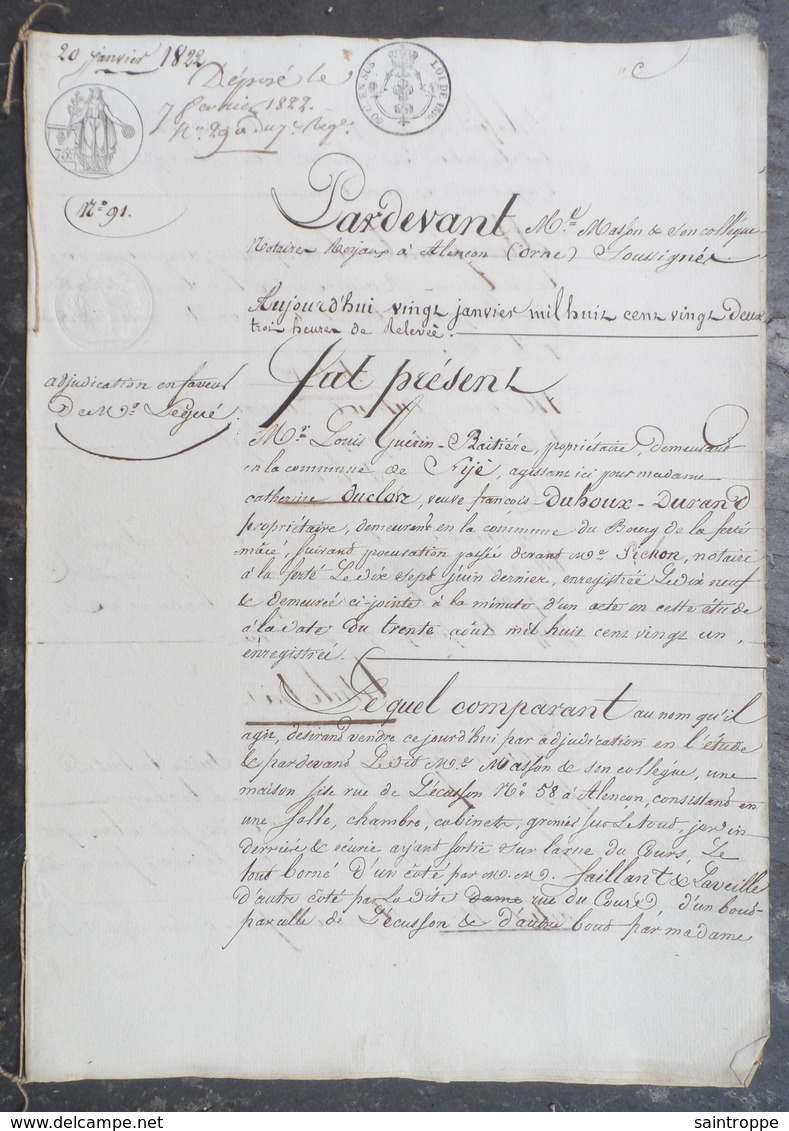 20 janvier 1822
Déposé le
7 fevrier 1822.
50 CENS LOI DE 1816
75 c
N.o 91.
Pardevant M.e Masson & son collègue
Notaires Royaux à Alençon (Orne) Soussignés.
Aujourd'hui vingt janvier mil huit cent vingt deux
trois heures de relevée.
adjudication en faveur
De M.r Legué.
fut présent
M.r Louis Guérin-Baitière, propriétaire, demeurant
en la commune de agissant ici pour madame
catherine Duclos, veuve françois Duhoux-Durand
propriétaire, demeurant en la commune du Bourg de la ferté
mâce, suivant procuration passée devant M.e Pichon, notaire
à la ferté Le dix sept juin dernier, enregistrée Le dix neuf
& demeurée ci-jointe à la minute d'un acte en cette étude
à la date du trente août mil huit cent vingt un,
enregistrée.
Lequel comparant au nom qu'il
agit, désirant vendre ce jourd'hui par adjudication en l'étude
& pardevant Ledit M.e Masson & son collègue, une
maison sise rue de Lécusson N.o 58 à Alençon, consistant en
une salle, chambre, cabinets, grenier sur Le tout, jardin
derrière & écurie ayant sortie sur la rue du Cours, Le
tout borné d'un côté par M. M. Saillant & Laveille
d'autre côté par La dite Dame rue du Cours, d'un bout
par celle de Lécusson & d'autre bout par madame
saintroppe